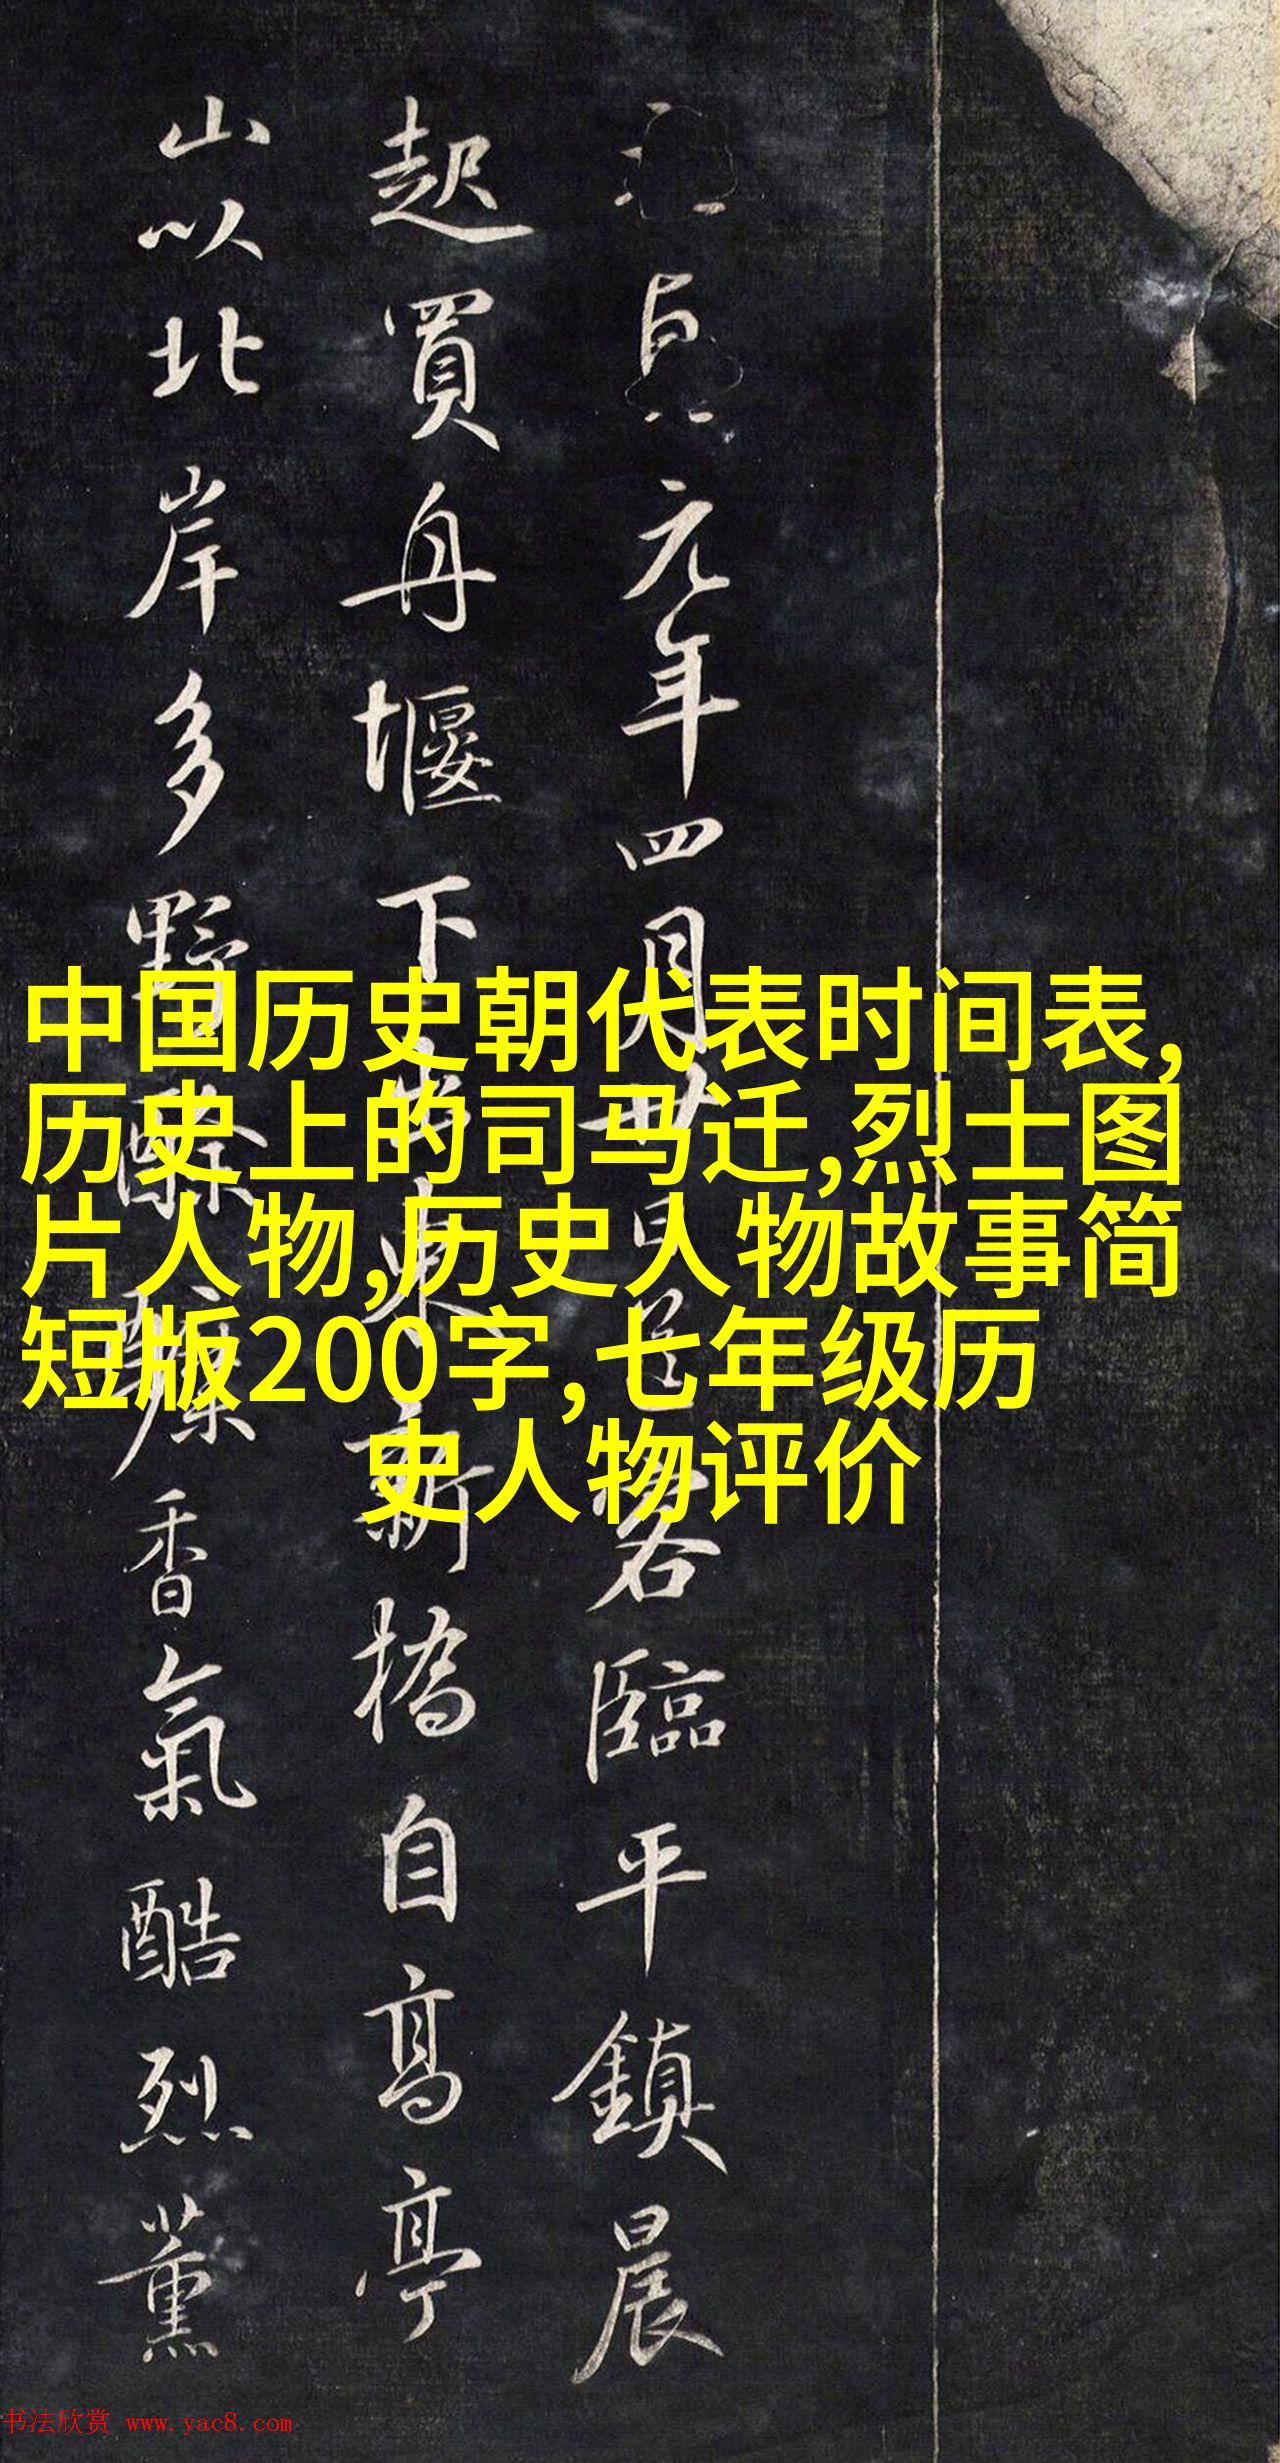 貞元年四月廿日客臨平鎮晨
起買舟堰下出東新橋自高亭
山以北岸多野酴醾香氣酷烈薰
中国历史朝代表时间表,
历史上的司马迁,烈士图
片人物,历史人物故事简
短版200字, 七年级历
史人物评价
书法欣赏 www.yac8.com